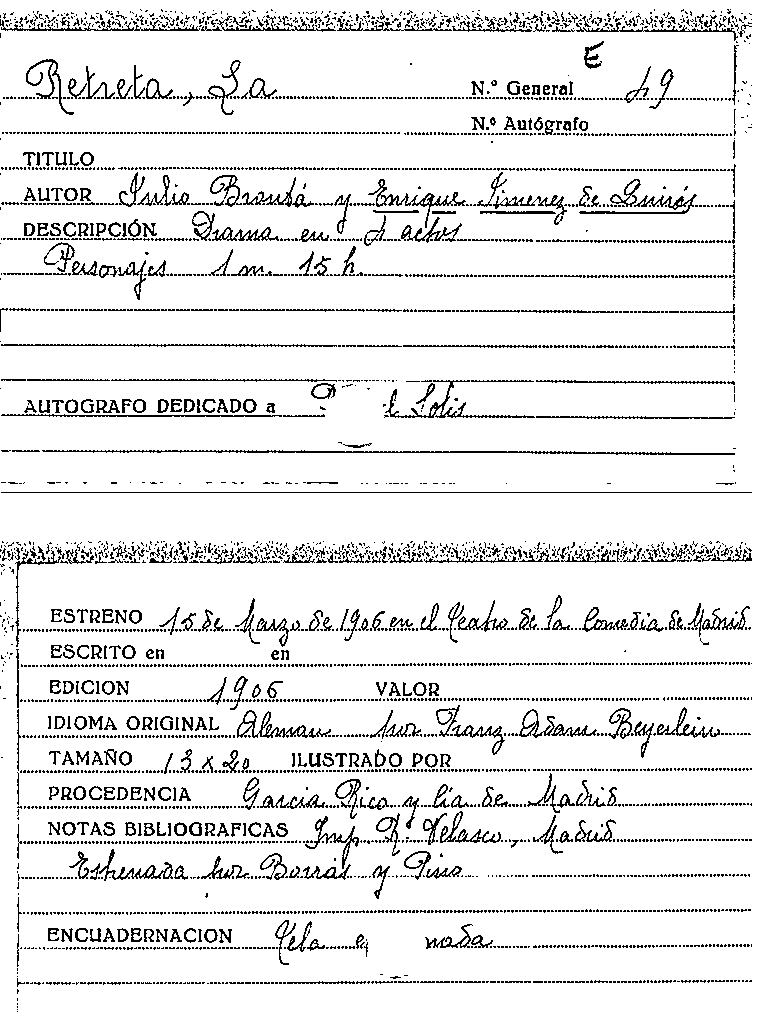 E
Retreta, La N.º General 49
N.º Autógrafo
TITULO
AUTOR Julio Broutá y Enrique Jimenez de Quirós
DESCRIPCIÓN Drama en 4 actos
Personajes 1 m. 15 h.
AUTOGRAFO DEDICADO a l Solis
ESTRENO 15 de Marzo de 1906 en el Teatro de la Comedia de Madrid
ESCRITO en en
EDICION 1906 VALOR
IDIOMA ORIGINAL Aleman por Franz Adam Beyerlein
TAMAÑO 13 x 20 ILUSTRADO POR
PROCEDENCIA Garcia Rico y Cía de Madrid
NOTAS BIBLIOGRAFICAS Imp. R. Velasco, Madrid
Estrenada por Borrás y Pino
ENCUADERNACION Tela